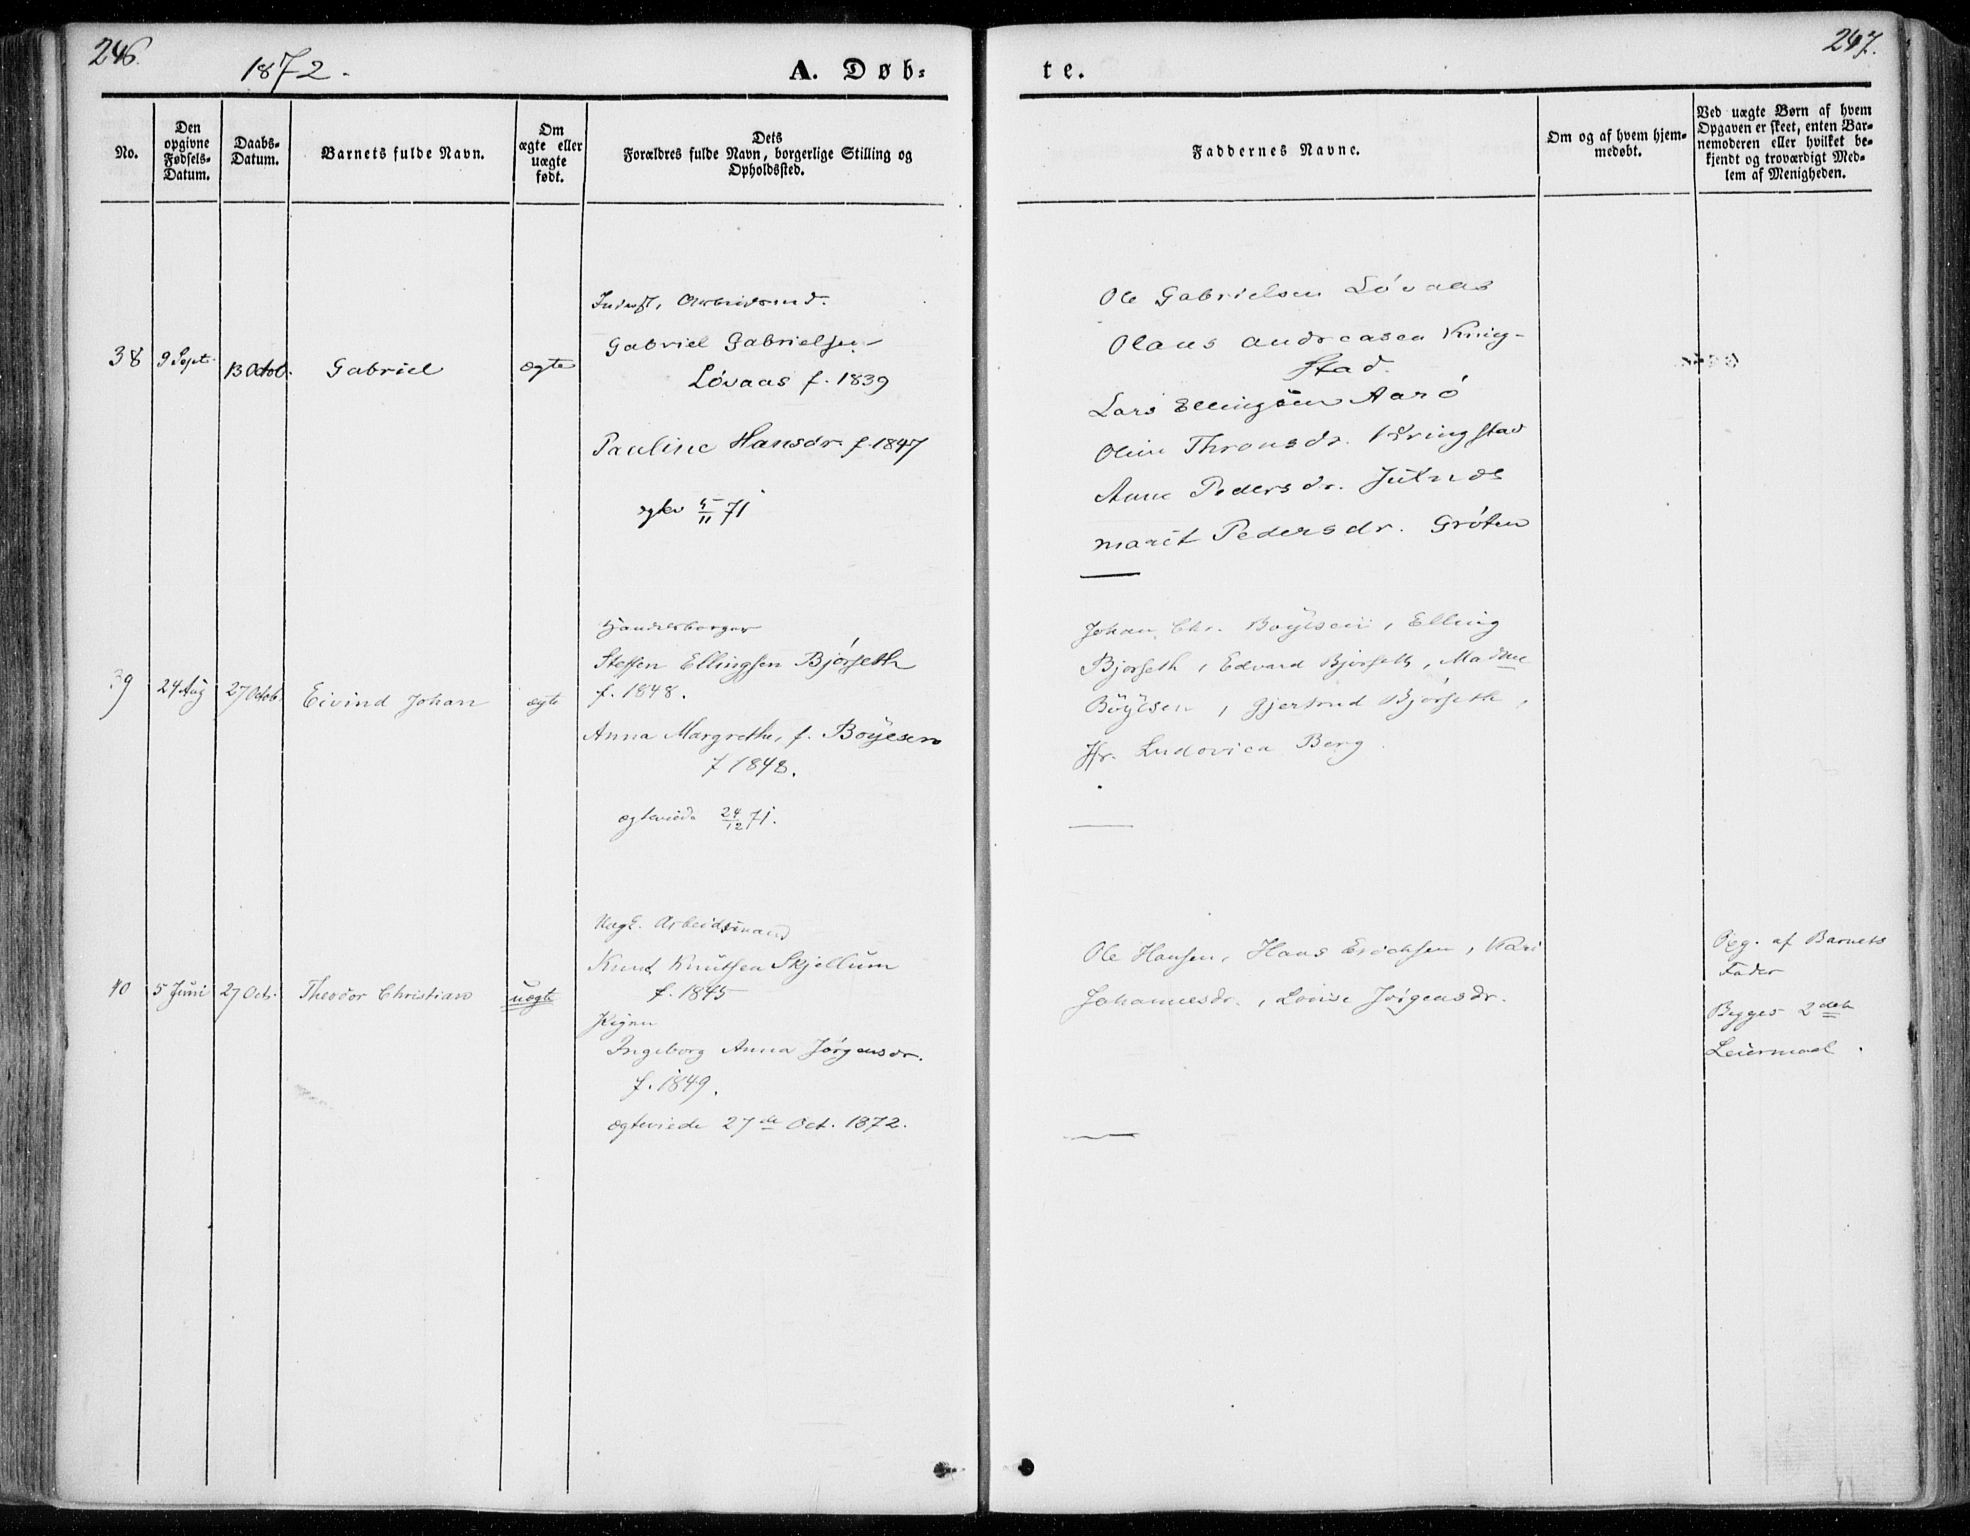 246.
1872.
A. Døb=
No.
Den
opgivne
Fødsels=
Datum.
Daabs=
Datum.
Barnets fulde Navn.
Om
ægte eller
uægte
født.
Dets
Forældres fulde Navn, borgerlige Stilling og
Opholdssted.
38
9 Sept.
13 Octob.
Gabriel
ægte
Gabriel Gabrielsen
Løvaas f. 1839
Pauline Hansdr f. 1847
5/11 71
39
24 Aug
27 Octob.
Eivind Johan
ægte
Handelsborger
Steffen Ellingsen Bjørseth
f. 1848.
Anna Margrethe, f. Böyesen
f 1848.
ægteviede 24/12 71.
40
5 Juni
27 Oct.
Theodor Christian
uægte
Arbeidsmand
Knud Knutsen Skjellum
f. 1845
Pigen
Ingeborg Anna Jørgensdr.
f. 1849.
ægteviede 27de Oct. 1872.
247.
te.
Faddernes Navne.
Om og af hvem hjem=
medøbt.
Ved uægte Børn af hvem
Opgaven er skeet, enten Bar=
nemoderen eller hvilket be=
kjendt og troværdigt Med=
lem af Menigheden.
Ole Gabrielsen Løvaas
Olaus Andreasen Kring-
stad.
Lars Ellingsen Aarø
Oline Thronsdr. Kringstad
Anne Pedersdr. Julnæs
Marit Pedersdr. Grøten
Johan Chr. Böyesen, Elling
Bjørseth, Edvard Bjørseth, Madme
Böyesen, Gjertrud Bjørseth,
Fr. Ludovica Berg.
Ole Hansen, Hans Erichsen, Kari
Johannesdr., Lovise Jørgensdr.
Opg. af Barnets
Fader
Begges 2det
Leiermaal.